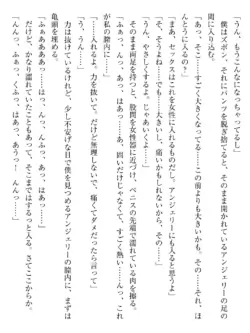 ん、もうこんなになっちゃってるし……」
僕はズボン、それにパンツを脱ぎ捨てると、そのまま開かれているアンジェリーの足の
間に入り込む。
「あっ、そこ……すごく大きくなってる……この前よりも大きいかも、その……それ、ほ
「まあ、セックスは女性に入れるものだし、アンジェリーにも入ると思うよ」
「そ、そう……でも、その……大きいから、痛いかもしれないし……」
「うん、やさしくするね。じゃあいくよ……」
そのまま両足を持つと、股間を女性器に近づけ、ペニスの先端で濡れている肉を擦る。
「ふぁっ、んんぅ……あっ、固いだけじゃなくて、すごく熱い……んっ、んんっ……これ
が私の膣内に……」
「……入れるよ。力を抜いて、だけど無理しないで、痛くてダメだったら言って」
「う、うん……」
力は抜けているけれど、少し不安げな目で僕を見つめるアンジェリーの膣内に、まずは
亀頭を埋める。
「ふぁあああぁっ……んっ、ふぁっ、あっ、はぁっ……」
だけど、かなり濡れていたこともあって、そこまではするっと入る。さてここから。
「んんっ……ふぁっ、くふっ、はぁっ、あうっ……んんっ……」